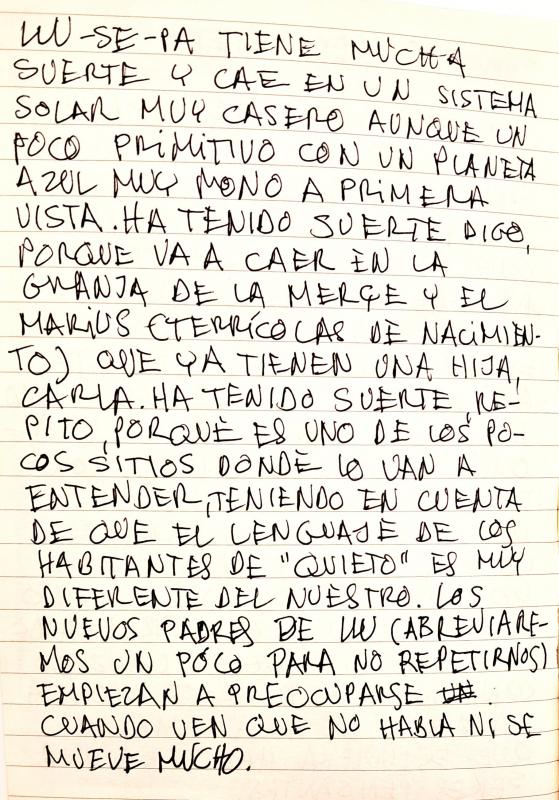 LLU-SE-PA TIENE MUCHA
SUERTE Y CAE EN UN SISTEMA
SOLAR MUY CASERO AUNQUE UN
POCO PRIMITIVO CON UN PLANETA
AZUL MUY MONO A PRIMERA
VISTA. HA TENIDO SUERTE DIGO,
PORQUE VA A CAER EN LA
GRANJA DE LA MERÇE Y EL
MARIUS (TERRÍCOLAS DE NACIMIEN-
TO) QUE YA TIENEN UNA HIJA,
CARLA. HA TENIDO SUERTE, RE-
PITO, PORQUE ES UNO DE LOS PO-
COS SITIOS DONDE LO VAN A
ENTENDER, TENIENDO EN CUENTA
DE QUE EL LENGUAJE DE LOS
HABITANTES DE "QUIETO" ES MUY
DIFERENTE DEL NUESTRO. LOS
NUEVOS PADRES DE LLU (ABREVIARE-
MOS UN POCO PARA NO REPETIRNOS)
EMPIEZAN A PREOCUPARSE
CUANDO VEN QUE NO HABLA NI SE
MUEVE MUCHO.